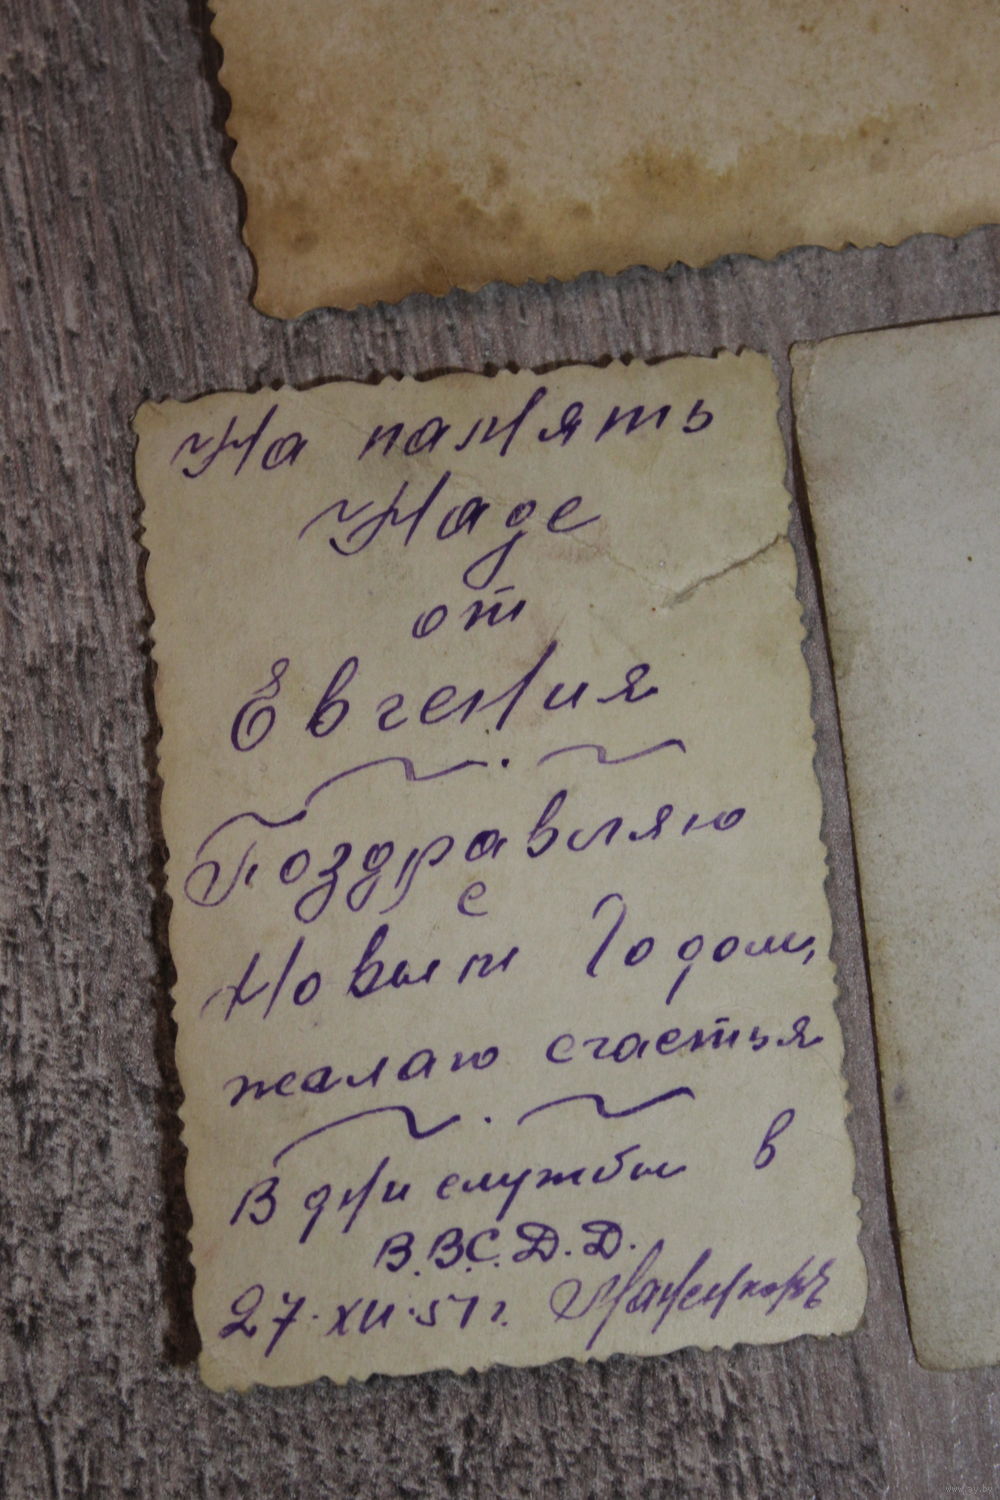 На память
Наде
от
Евгения
Поздравляю
с
Новым Годом,
желаю счастья
В дни службы в
В.В.С.Д.Д.
27.XII.51г.
www.ay.by